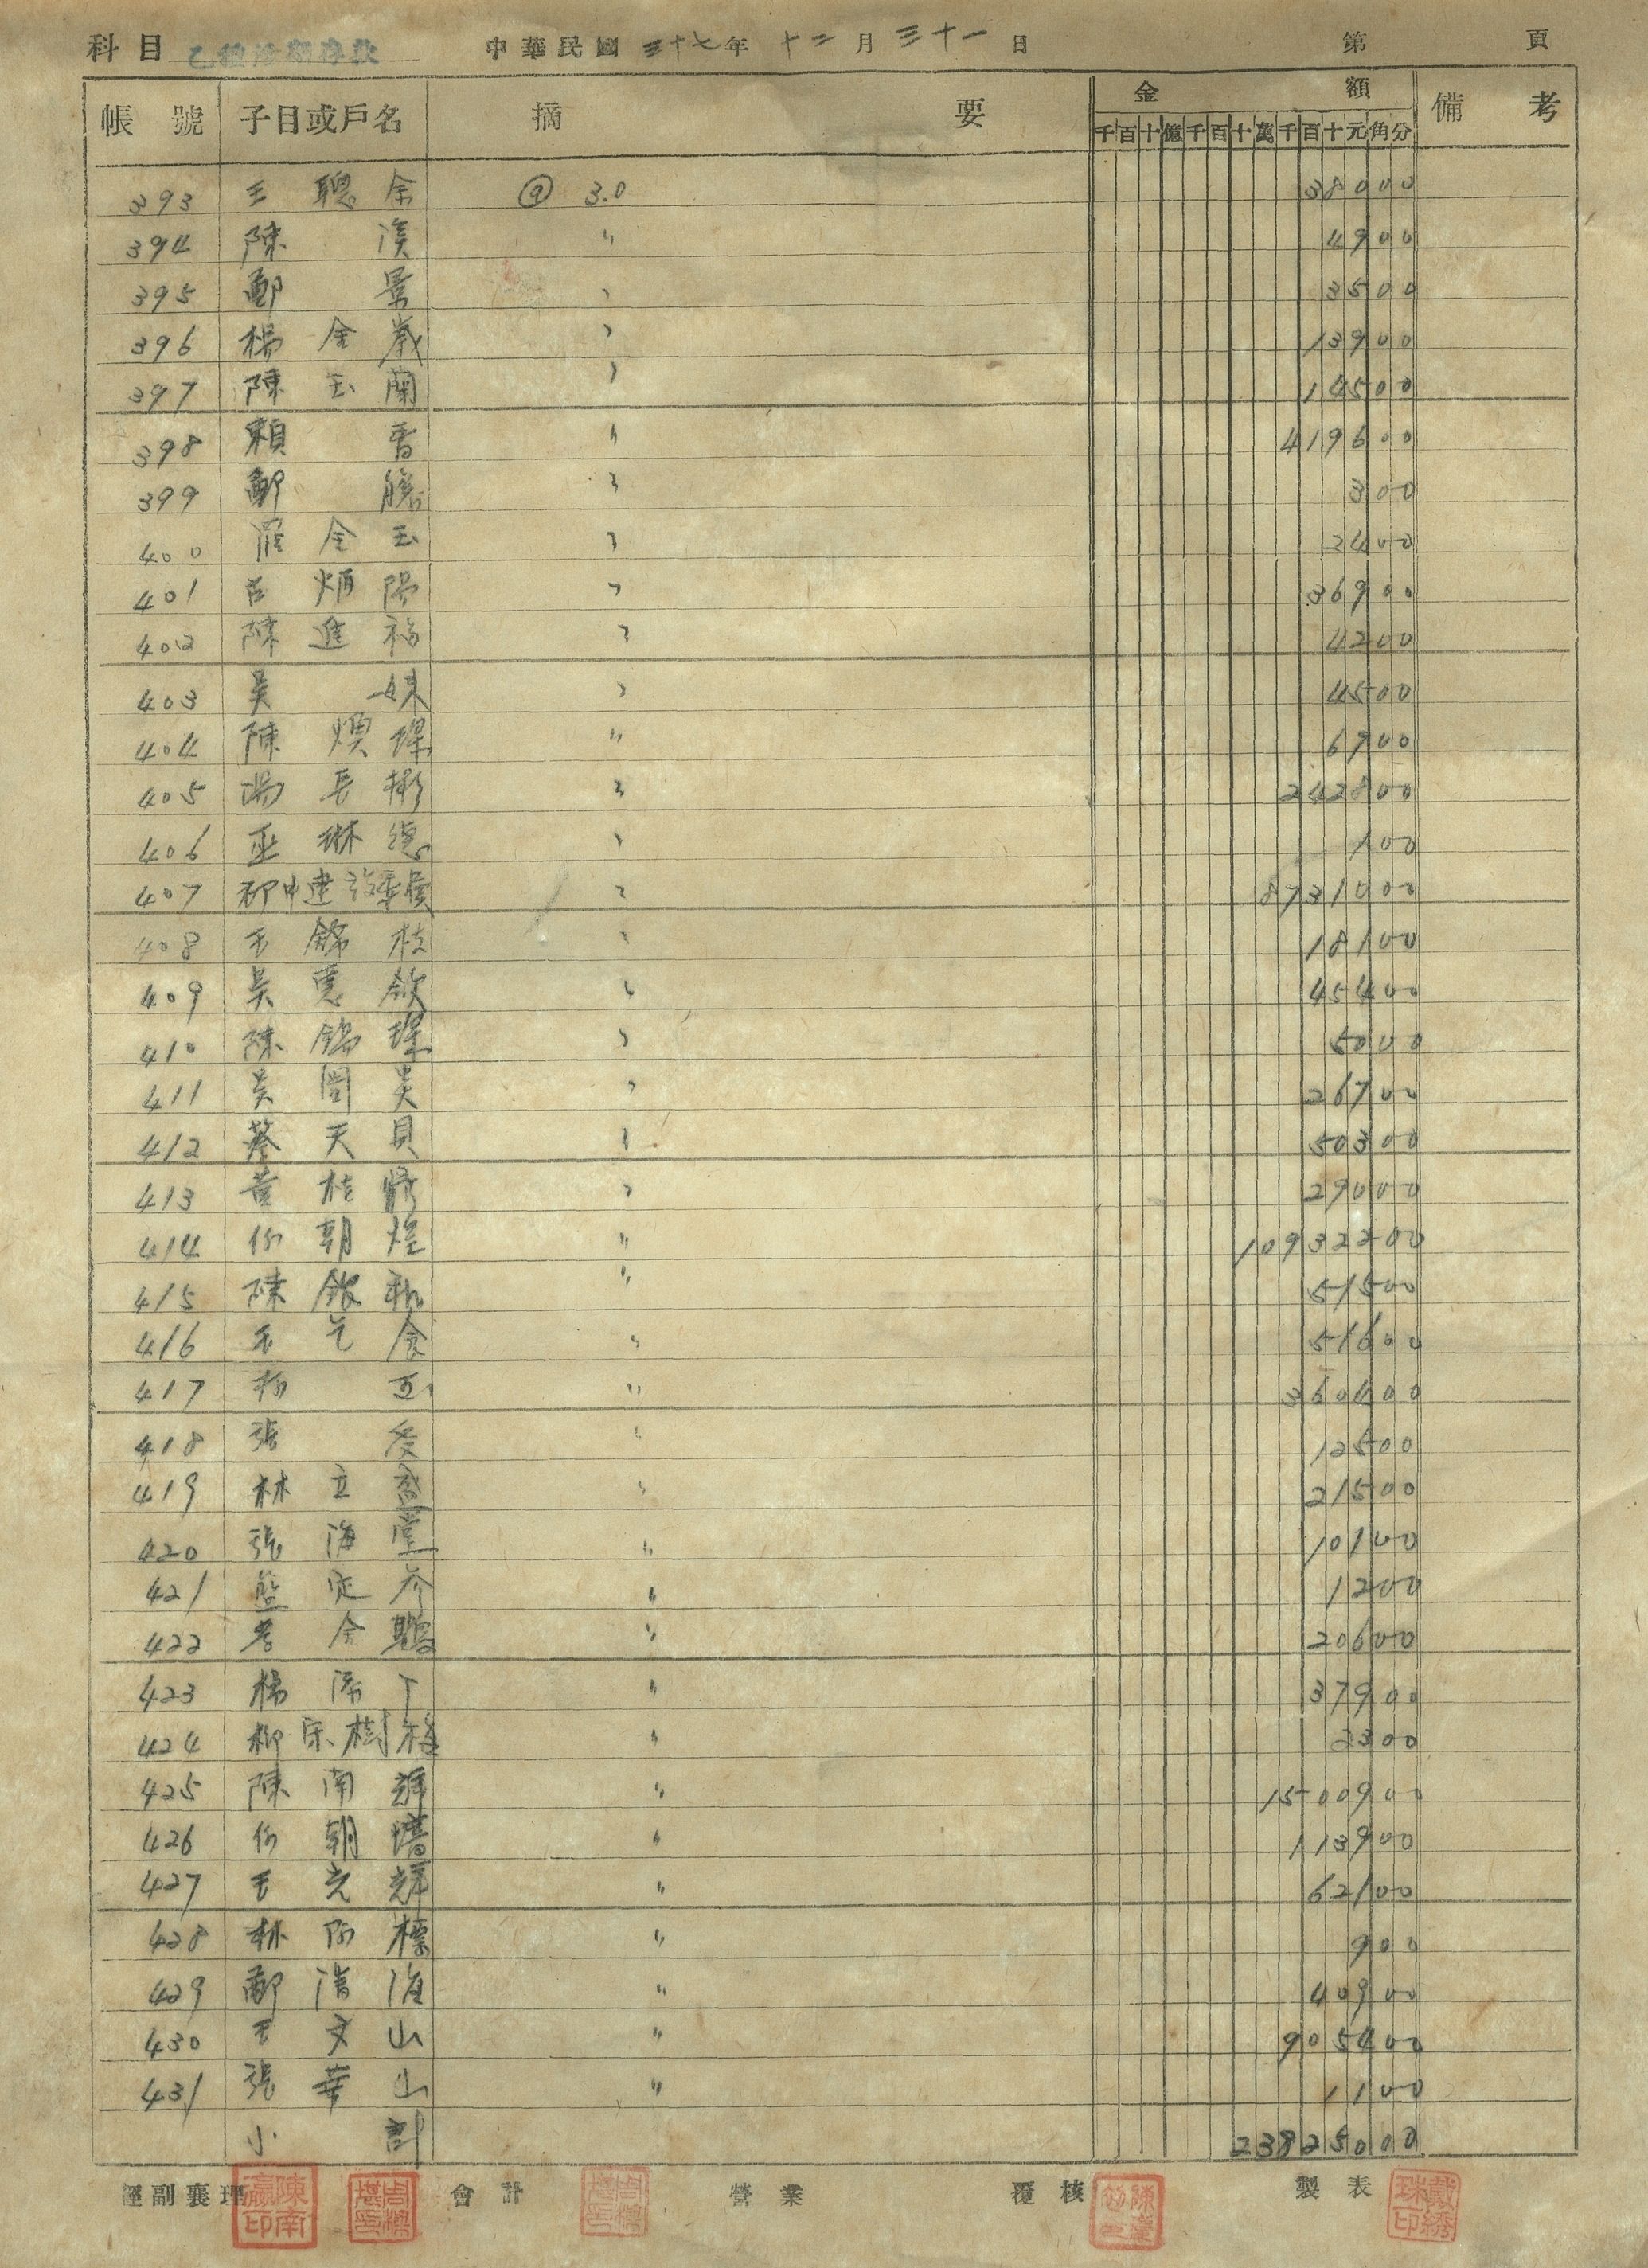 科目 乙種活期存款 中華民國三十七年十二月三十一日 第 頁
帳號 子目或戶名 摘要 金額 備考
千百十億千百十萬千百十元角分
393 王聰余 @ 3.0 38000
394 陳溪 〃 4900
395 鄭景 〃 3500
396 楊金崴 〃 13900
397 陳玉蘭 〃 14500
398 賴香 〃 419600
399 鄭勝 〃 300
400 羅金玉 〃 2400
401 古炳陽 〃 36900
402 陳進福 〃 4200
403 吳妹 〃 4500
404 陳煥琛 〃 6900
405 湯長彬 〃 242800
406 巫琳德 〃 100
407 〃 8731000
408 王錦枝 〃 18100
409 吳 〃 45400
410 陳錦琛 〃 5000
411 吳 〃 26700
412 蔡天貝 〃 50300
413 黃桂 〃 29000
414 朝煌 〃 10932200
415 陳銀 〃 51500
416 王乞食 〃 51600
417 〃 360400
418 張 〃 12500
419 林立 〃 21500
420 張海堂 〃 10100
421 藍定 〃 1200
422 金 〃 20600
423 楊 〃 37900
424 柳宋樹梅 〃 2300
425 陳南輝 〃 1500900
426 朝 〃 113900
427 王光輝 〃 62100
428 林阿標 〃 900
429 鄭清 〃 40900
430 王文山 〃 905400
431 張華山 〃 1100
小計 23825000
經副襄理 陳南瀛印 會計 營業 覆核 製表 戴綉珠印